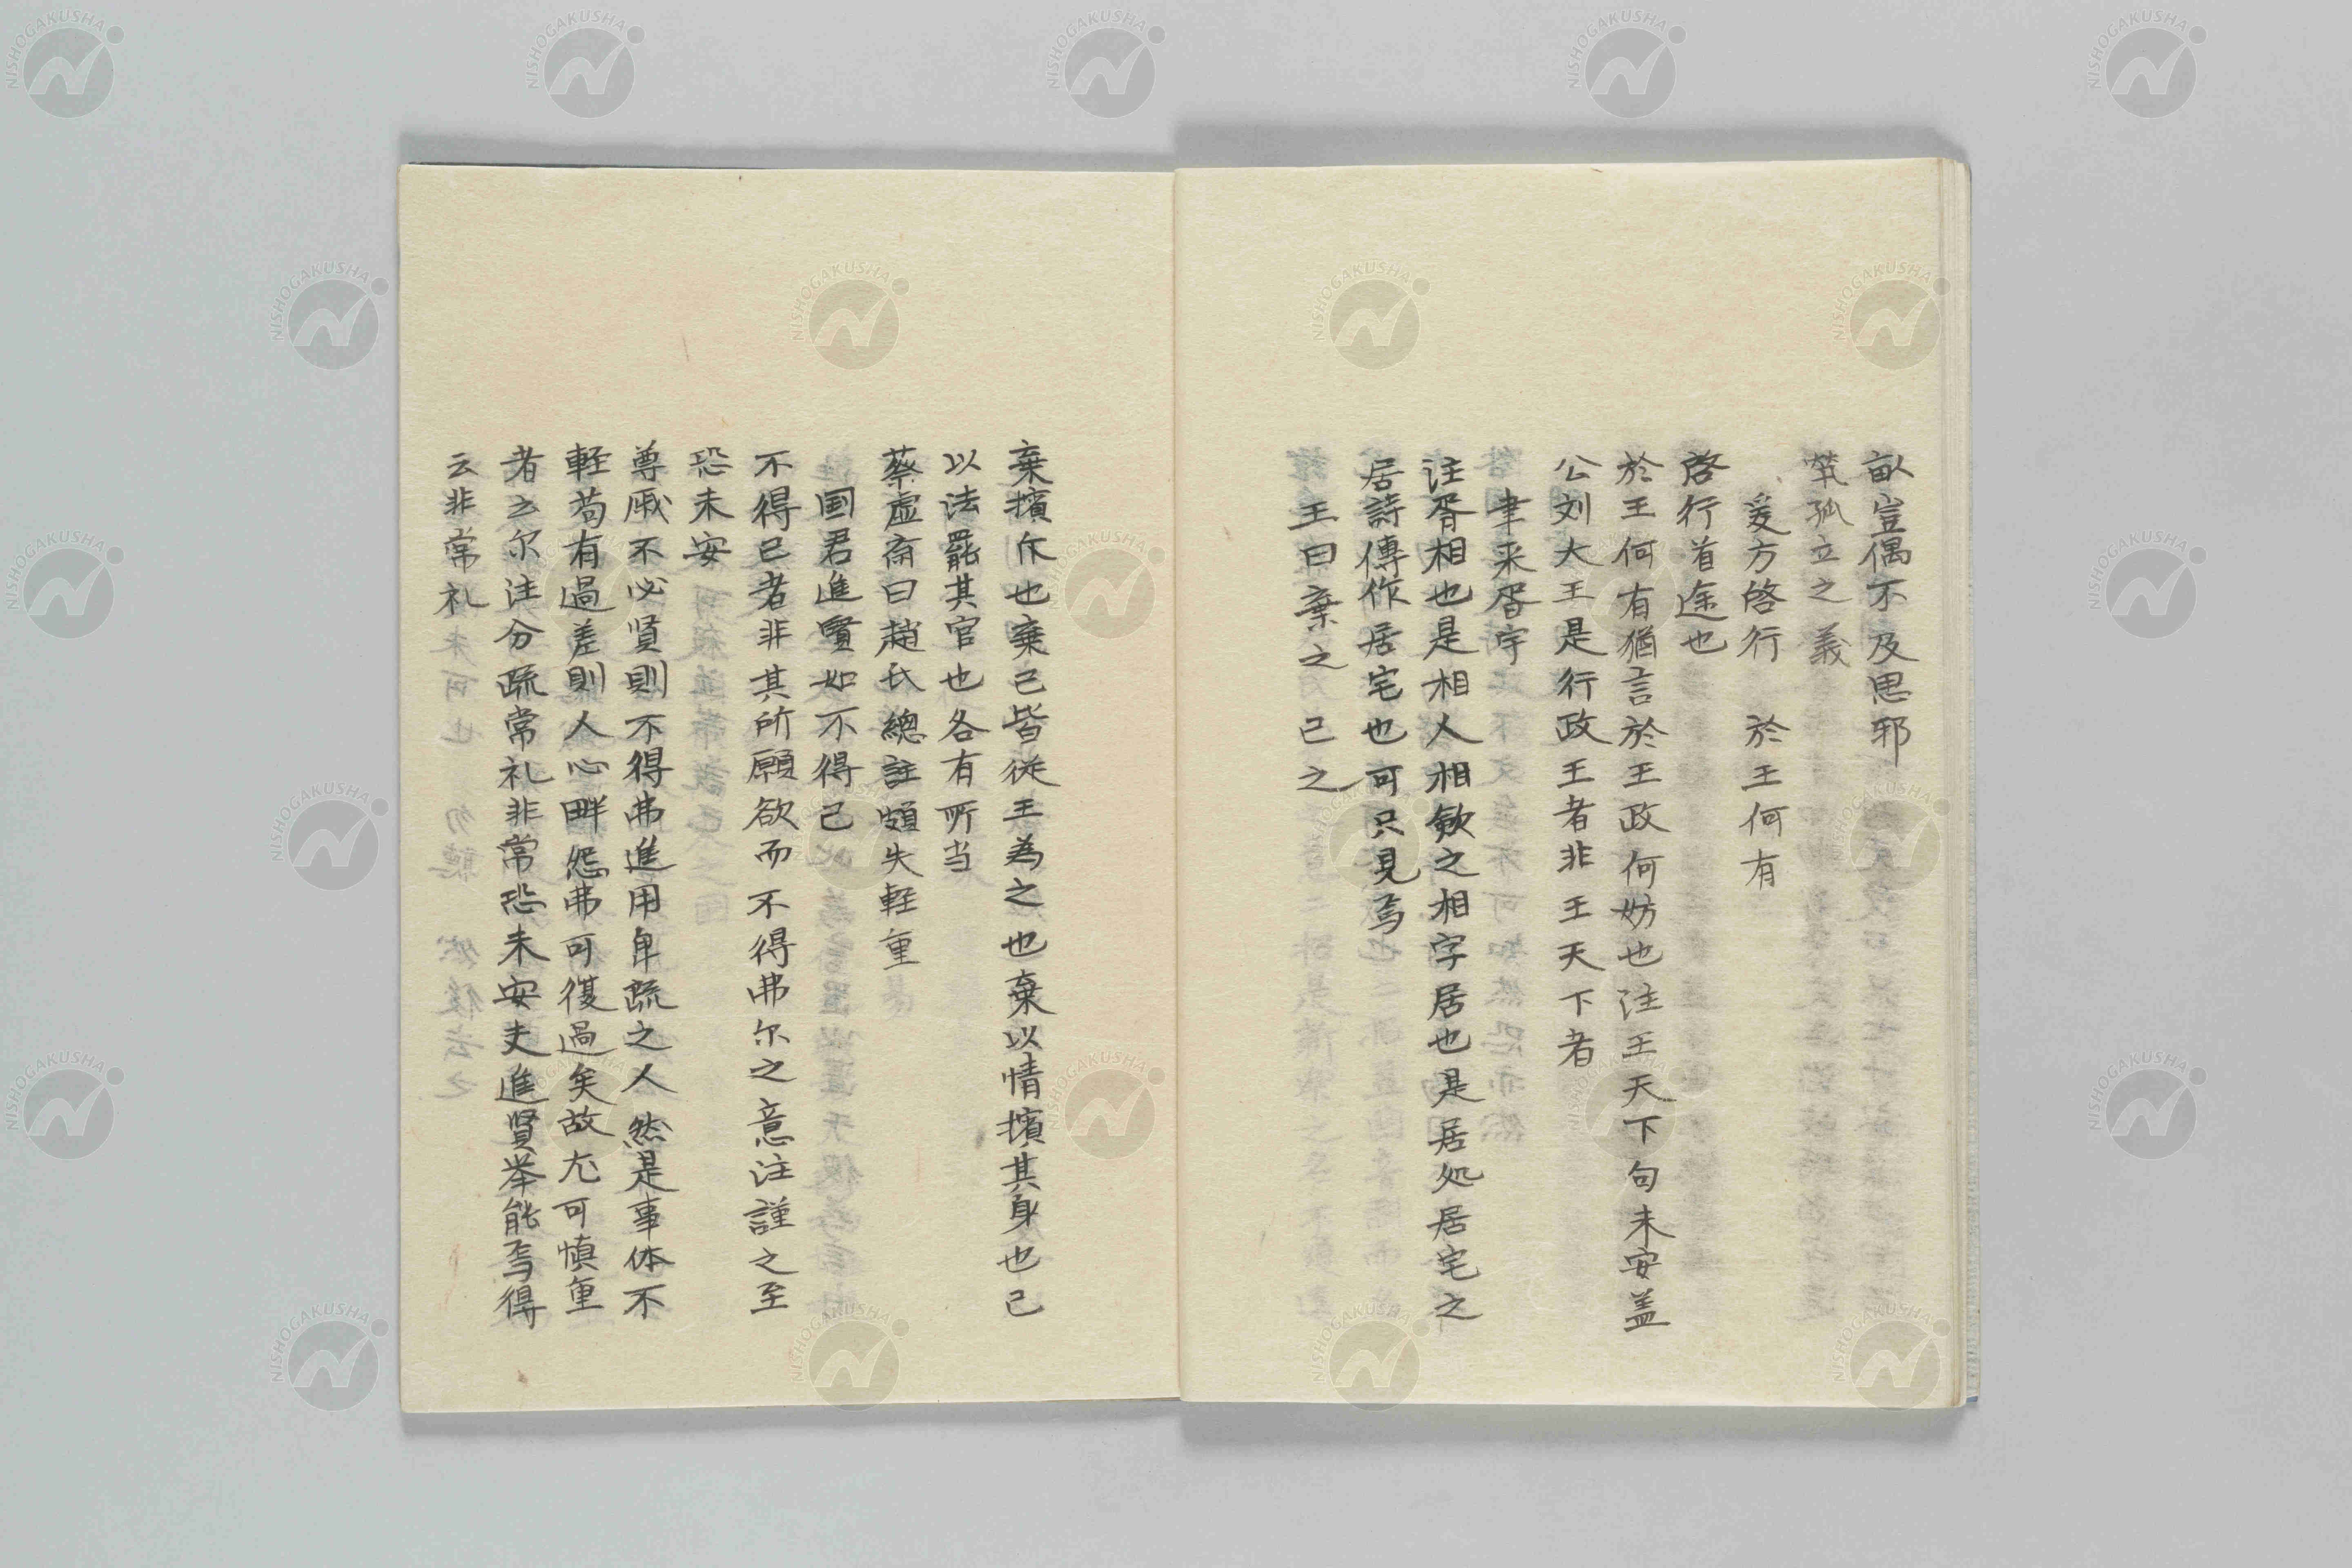 畝豈偶不及思邪
煢孤立之義
爰方啓行　於王何有
啓行首途也
於王何有猶言於王政何妨也注王天下句未安盖
公刘大王是行政王者非王天下者
聿来胥宇
注胥相也是相人相欸之相字居也是居処居宅之
居詩傳作居宅也可只見焉
王曰棄之　已之
棄擯斥也棄已皆従王為之也棄以情擯其身也已
以法罷其官也各有所当
蔡虚斎曰趙氏總註頗失軽重
国君進賢如不得已
不得已者非其所願欲而不得弗尔之意注謹之至
恐未安
尊戚不必賢則不得弗進用卑疏之人然是事体不
軽苟有過差則人心畔怨弗可復過矣故尤可慎重
者云尔注分疏常礼非常恐未安夫進賢举能焉得
云非常礼